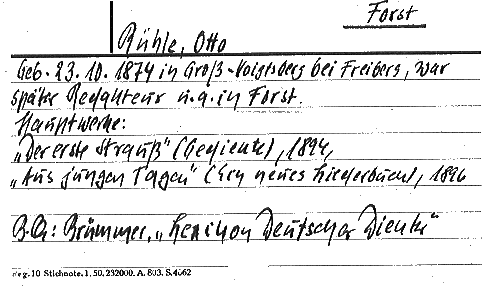 Forst
Rühle, Otto
Geb. 23. 10. 1874 in Groß-Voigtsberg bei Freiberg, war
später Redakteur u.a. in Forst.
Hauptwerke:
„Der erste Strauß" (Gedichte), 1894,
„Aus jungen Tagen" (Ein neues Liederbuch), 1896
B.Q.: Brümmer, „Lexikon Deutscher Dichter"
eg. 10 Stichnote. 1. 50. 232000. A. 803. S. 4062